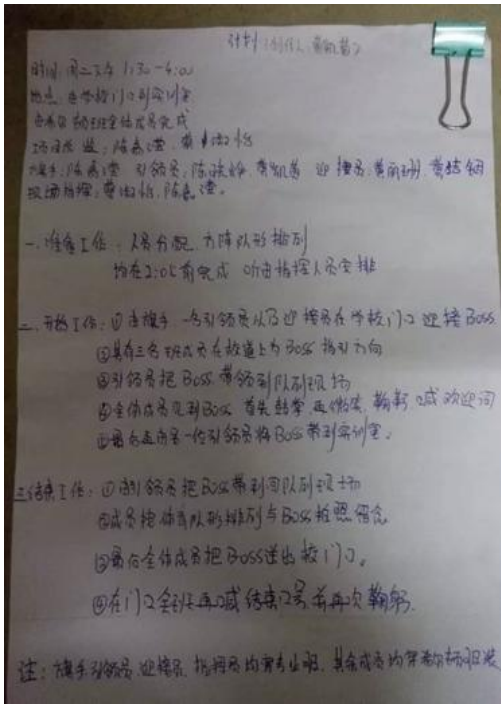 计划(创作人:黄凯葛)
时间:周二下午 1:30-4:00
地点:在学校门口到实训室
由希尔顿班全体成员完成
现场总监:陈嘉滢、黄
旗手:陈嘉滢 引领员:陈 黄凯葛 迎接员:黄丽珊、黄结
现场指挥:黄 怡、陈嘉滢。
一、准备工作:人员分配、方阵队形排列
均在2:05前完成 听由指挥人员安排
二、开始工作:①由旗手、一名引领员以及迎接员在学校门口迎接Boss
②具有三名班成员在校道上为Boss指引方向
③引领员把Boss带领到队列现场
④全体成员见到Boss 首先鼓掌,再微笑、鞠躬、喊欢迎词
⑤最后走向另一位引领员将Boss带到实训室。
三、结束工作:①由引领员把Boss带到回队列现场
②成员抱体育队形排列与Boss拍照留念
③最后全体成员把Boss送出校门口。
④在门口全班再喊结束口号并再次鞠躬.
注:旗手、引领员、迎接员、指挥员均穿专业服,其余成员均穿希尔顿班服装